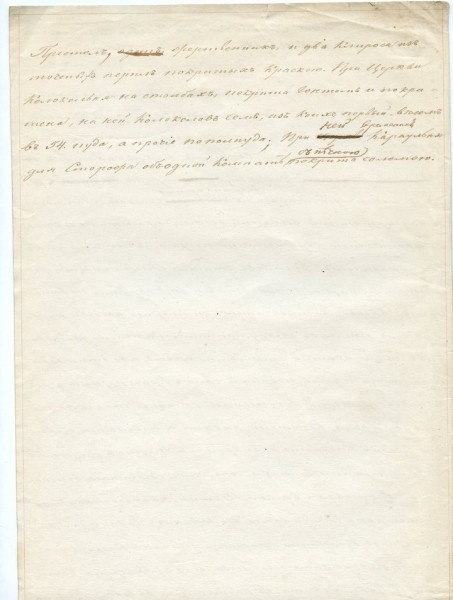 Престолъ, жертвенникъ, и два клироса изъ
перилъ покрытыхъ краскою. При Церкви
Колокольня на столбахъ, покрыта и покра-
шена, на ней Колоколовъ семь, изъ коихъ первый вѣсомъ
въ 54. пуда, а прочіе по полпуда; При ней
для Сторожа объ одной комнатѣ покрыта соломою.